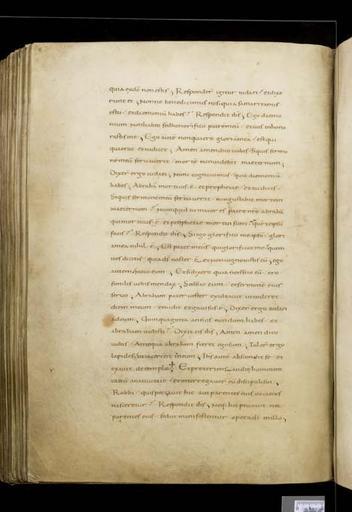 quia ex dō non estis ; Responder igitur iudaei & dixe
runt ei ; Nonne bene dicimus nos quia samaritanus
es tu & daemonium habes ? Respondit ihs ; Ego daemo
nium non habeo sed honorifico patrem meū & vos inhono
rastis me ; Ego autē non quaero gloriā meā est qui
quaerit & iudicet ; Amen amen dico vobis si quis sermo
nē meū servaverit mortē non videbit in aeternum ;
Dixer ergo iudaei ; Nunc cognovimus quia daemoniū
habes ; Abrahā mortuus ē & prophetae & tu dicis
Si quis sermonē meū servaverit non gustabit mortem
in aeternum ; Numquid tu maior es patre nrō abrahā
qui mortuus ē & prophetae mortui sunt ; quē te ipsū
facis ? Respondit ihs ; Si ego glorifico me ipsū gloria
mea nihil ē ; Est pater meus qui glorificat me quem
vos dicitis quia ds noster ē & non cognovistis eū ego
autem novi eum ; Et si dixero quia non scio eū ero
similis vobis mendax ; Sed scio eum & sermonē eius
servo ; Abraham pater vester exultavit ut videret
diem meum & vidit & gavisus ē ; Dixer ergo iudaei
ad eum ; Quinquaginta annos nondum habes &
abraham vidisti ? Dixit eis ihs ; Amen amen dico
vobis Antequā abraham fieret ego sum ; Tuler ergo
lapides ut iacerent in eum ; Ihs autē abscondit se &
exivit de templo ✝ Et praeteriens vidit hominem
caecū a nativitate & interrogaver eū discipuli sui
Rabbi quis peccavit hic aut parentes eius ut caecus
nasceretur ? Respondit ihs ; Neq; hic peccavit neq;
parentes eius sed ut manifestetur opera dī in illo ;